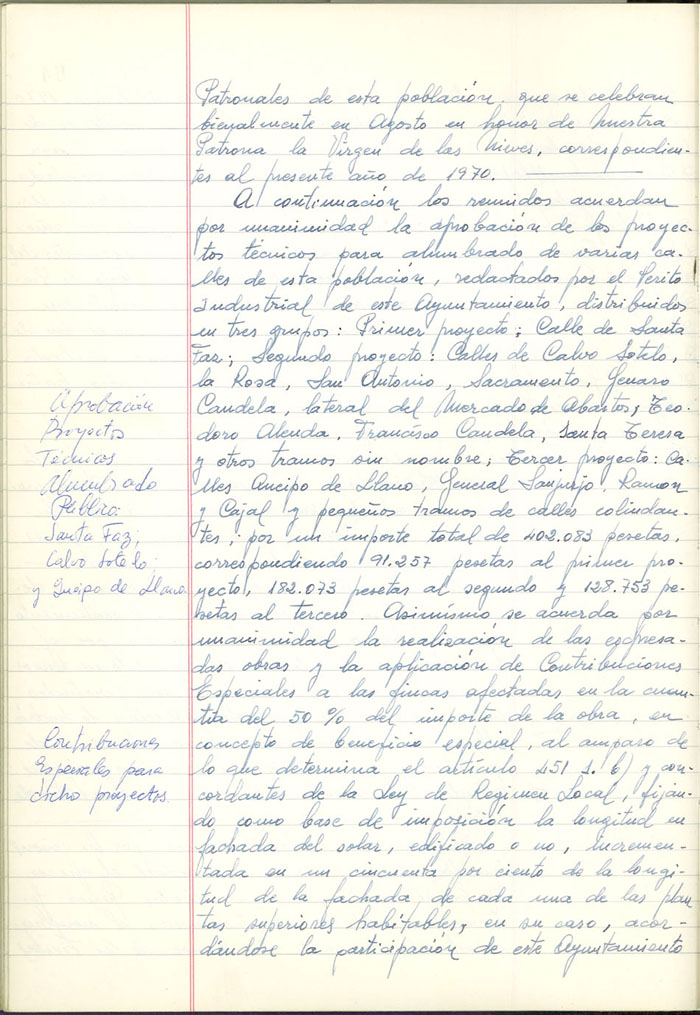 Patronales de esta población que se celebran
bienalmente en Agosto en honor de Nuestra
Patrona la Virgen de las Nieves, correspondien-
tes al presente año de 1970.
A continuación los reunidos acuerdan
por unanimidad la aprobación de los proyec-
tos técnicos para alumbrado de varias ca-
lles de esta población, redactados por el Perito
Industrial de este Ayuntamiento, distribuidos
en tres grupos: Primer proyecto; Calle de Santa
Faz; Segundo proyecto: Calles de Calvo Sotelo,
la Rosa, San Antonio, Sacramento, Genaro
Candela, lateral del Mercado de Abastos, Teo-
doro Alenda, Francisco Candela, Santa Teresa
y otros tramos sin nombre; Tercer proyecto: Ca-
lles Queipo de Llano, General Sanjurjo, Ramon
y Cajal y pequeños tramos de calles colindan-
tes, por un importe total de 402.083 pesetas,
correspondiendo 91.257 pesetas al primer pro-
yecto, 182.073 pesetas al segundo y 128.753 pe-
setas al tercero. Asimismo se acuerda por
unanimidad la realización de las expresa-
das obras y la aplicación de Contribuciones
Especiales a las fincas afectadas en la cuan-
tía del 50 % del importe de la obra, en
concepto de beneficio especial, al amparo de
lo que determina el artículo 451 1. b) y con-
cordantes de la Ley de Regimen Local, fijan-
do como base de imposición la longitud en
fachada del solar, edificado o no, incremen-
tada en un cincuenta por ciento de la longi-
tud de la fachada de cada una de las plan
tas superiores habitables, en su caso, acor-
dándose la participación de este Ayuntamiento
Aprobación
Proyectos
Técnicos
Alumbrado
Público:
Santa Faz;
Calvo Sotelo;
y Queipo de Llano
Contribuciones
Especiales para
dicho proyectos.